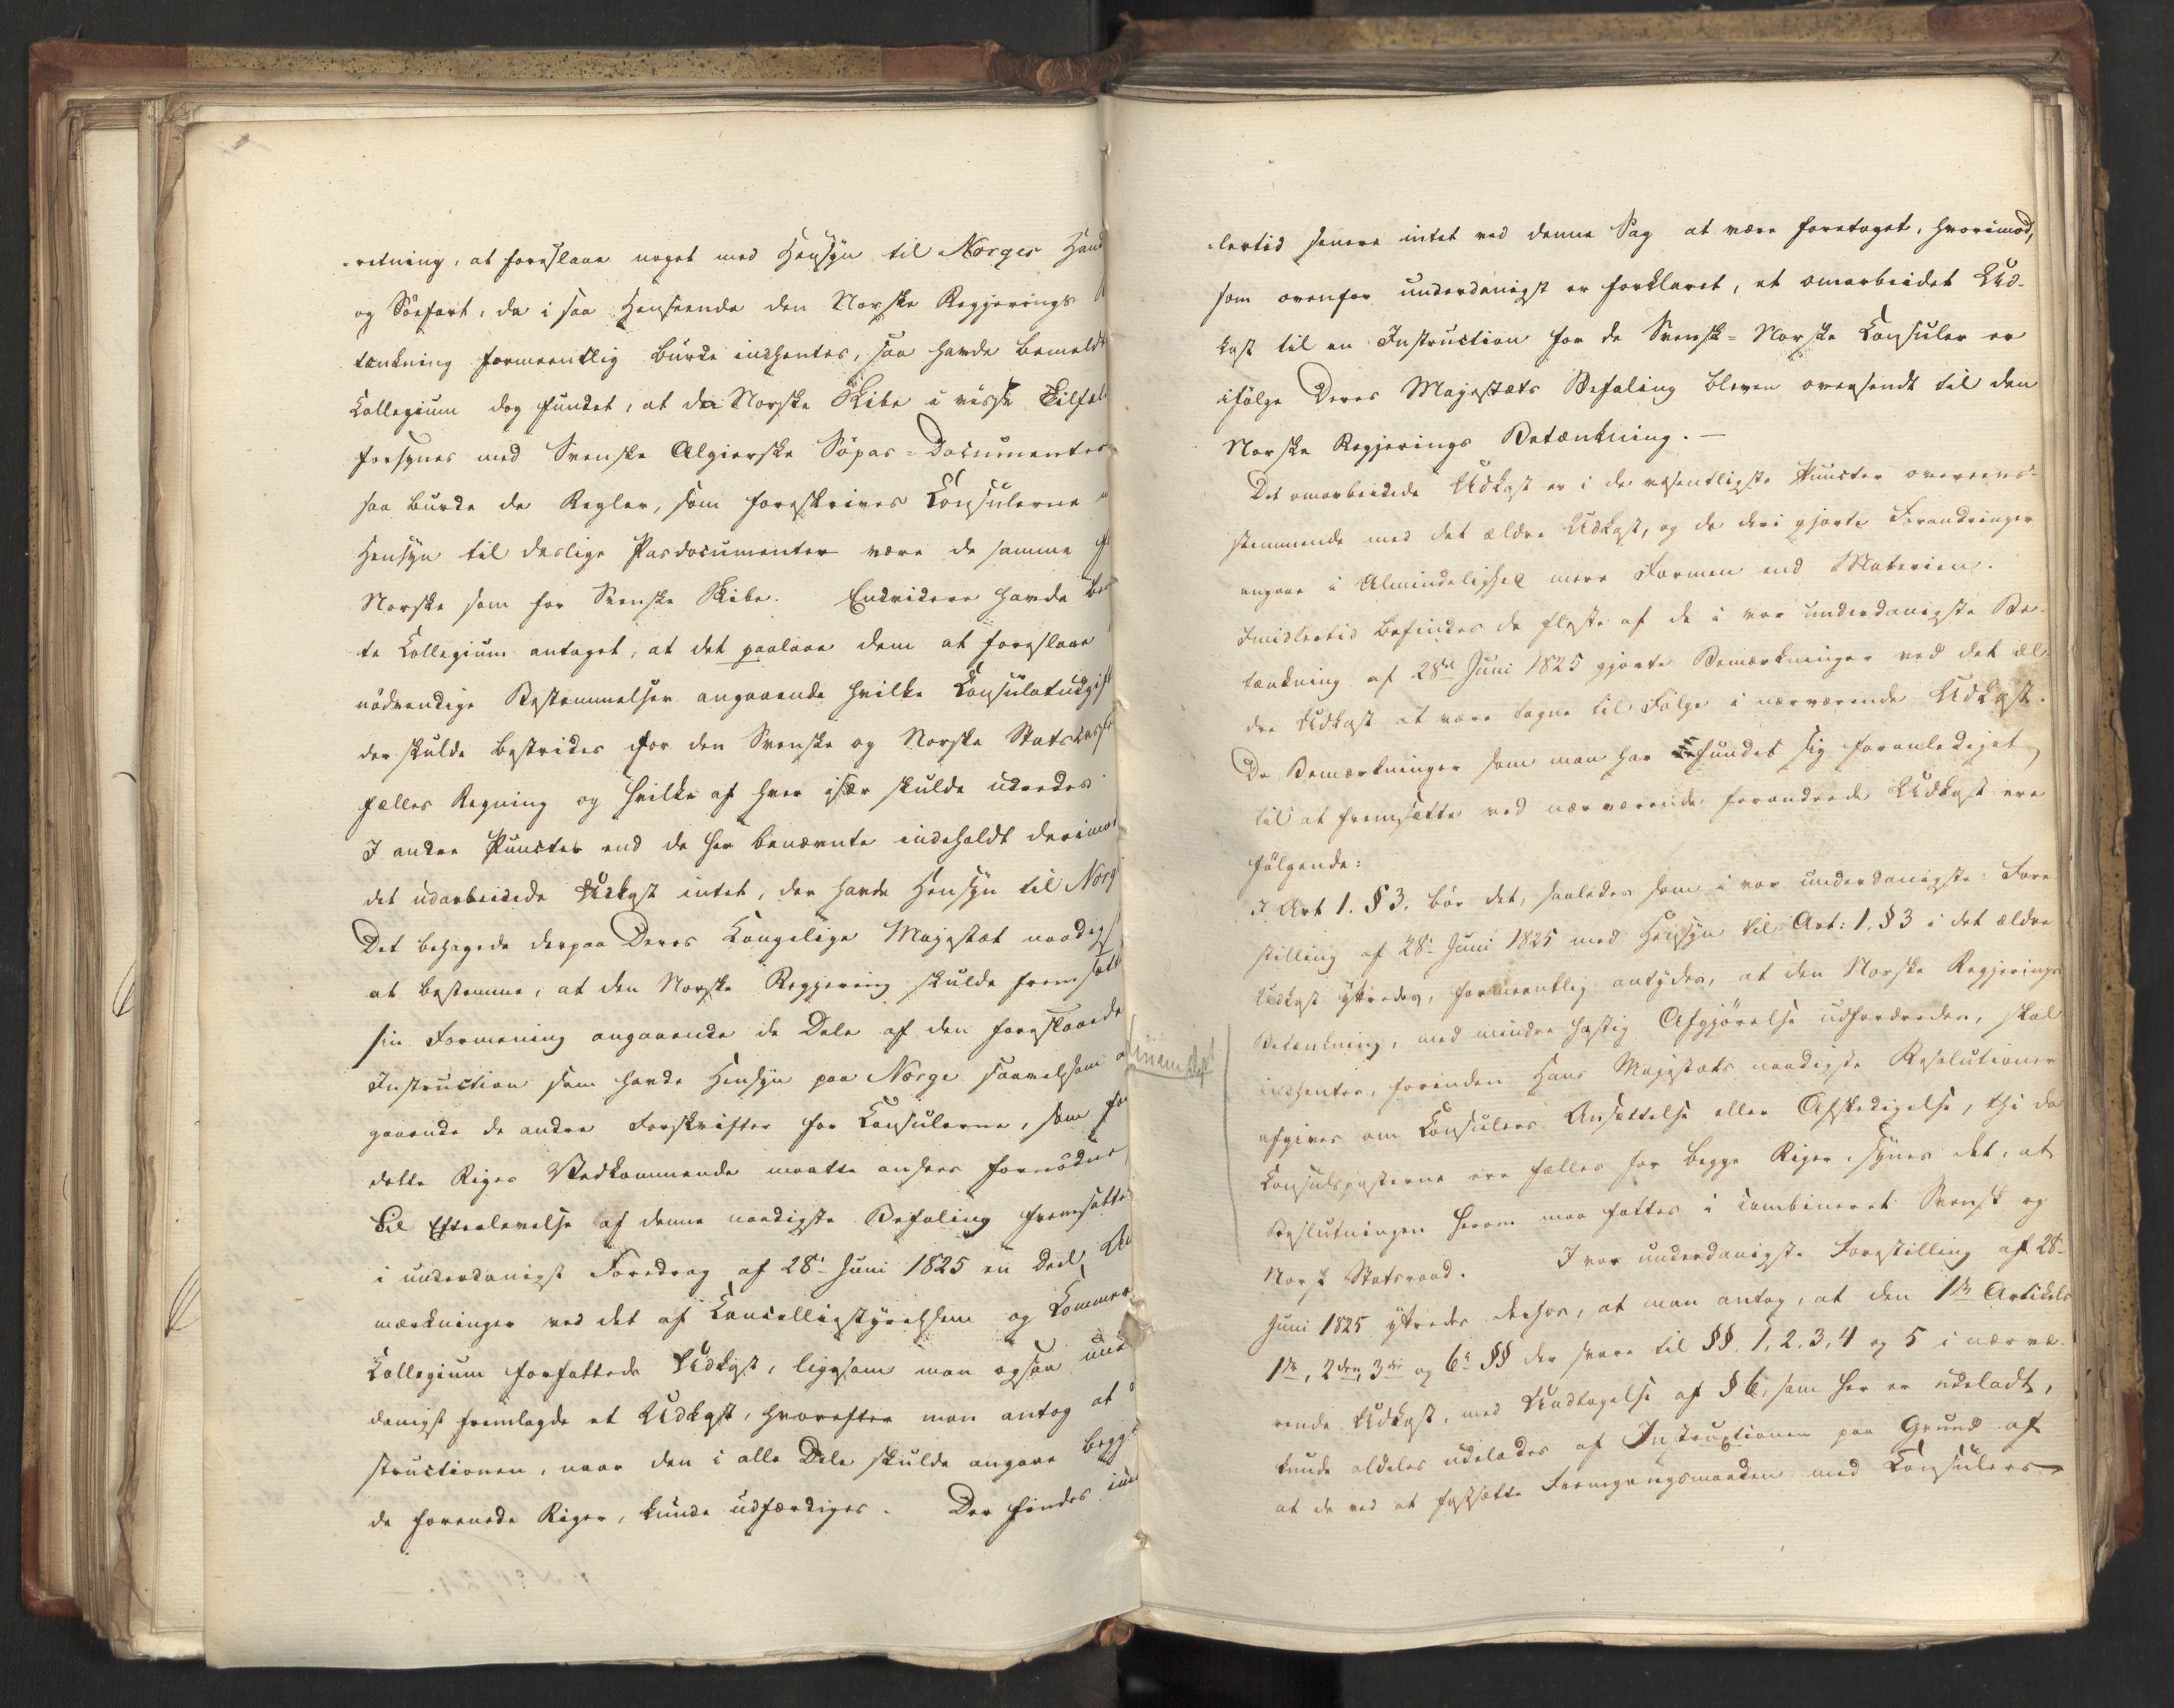 -retning, at foreslaae noget med Hensyn til Norges Hand
og Söefart, da i saa Henseende den Norske Regjerings
tænkning formeentlig burde indhentes, saa havde bemeldt
Collegium dog fundet, at da Norske Skibe i visse Tilfæl
forsynes med Svenske Algierske Söpas-Documenter
saa burde de Regler, som foreskrives Consulerne
Hensyn til deslige Pasdocumenter være de samme
Norske som for Svenske Skibe. Endvidere havde be
te Collegium antaget, at det paalaae dem at foreslaae
nödvendige Bestemmelser angaaende hvilke Consulatudgif
der skulde bestrides for den Svenske og Norske Statskasse
fælles Regning og hvilke af hver især skulde udredes
I andre Puncter end de her benævnte indeholdt derimod
det udarbeidede Udkast intet, der havde Hensyn til Norg
Det behagede derpaa Deres Kongelige Majestæt naadigs
at bestemme, at den Norske Regjering skulde fremsætte
sin Formening angaaende de Dele af den foreslaaede
Instruction som havde Hensyn paa Norge saavelsom a
gaaende de andre Forskrifter for Consulerne, som for
dette Riges Vedkommende maatte ansees fornödne
Til Efterlevelse af denne naadigste Befaling fremsatte
i underdanigst Foredrag af 28de Juni 1825 en Deel
mærkninger ved det af Cancelliestyrelsen og Commer
Collegium forfattede Udkast, ligesom man ogsaa und
danigst fremlagde et Udkast, hvorefter man antog at
structionen, naar den i alle Dele skulde angaae begge
de forenede Riger, kunde udfærdiges. Der findes im
-lertid senere intet ved denne Sag at være foretaget, hvorimod,
som ovenfor underdanigst er forklaret, et omarbeidet Ud-
kast til en Instruction for de Svensk-Norske Consuler er
ifölge Deres Majestæts Befaling bleven oversendt til den
Norske Regjerings Betænkning. —
Det omarbeidede Udkast er i de væsentligste Puncter overeens-
stemmende med det ældre Udkast, og de deri gjorte Forandringer
angaae i Almindelighed mere Formen end Materien.
Imidlertid befindes de fleste af de i vor underdanigste Be-
tænkning af 28de Juni 1825 gjorte Bemærkninger ved det æl-
dre Udkast at være tagne til Fölge i nærværende Udkast.
De Bemærkninger som man har fundet sig foranlediget
til at fremsætte ved nærværende forandrede Udkast ere
fölgende:
I Art 1. § 3. bör det, saaledes som i vor underdanigste Fore-
stilling af 28de Juni 1825 med Hensyn til Art: 1. § 3 i det ældre
Udkast yttredes, formeentlig antydes, at den Norske Regjerings
Betænkning, med mindre hastig Afgjörelse udfordredes, skal
indhentes, forinden Hans Majestæts naadigste Resolutioner
afgives om Consulers Ansættelse eller Afskedigelse, thi da
Consulsposterne ere fælles for begge Riger, synes det, at
Beslutningen herom maa fattes i combineret Svensk og
Norsk Statsraad. I vor underdanigste Forestilling af 28de
Juni 1825 yttredes derhos, at man antog, at den 1ste Artikels
1ste, 2den, 3die og 6te §§ der svare til §§. 1, 2, 3, 4 og 5 i nærvæ-
rende Udkast, med Undtagelse af § 6, som her er udeladt,
kunde aldeles udelades af Instructionen paa Grund af
at de ved at fastsætte Fremgangsmaaden med Consulers